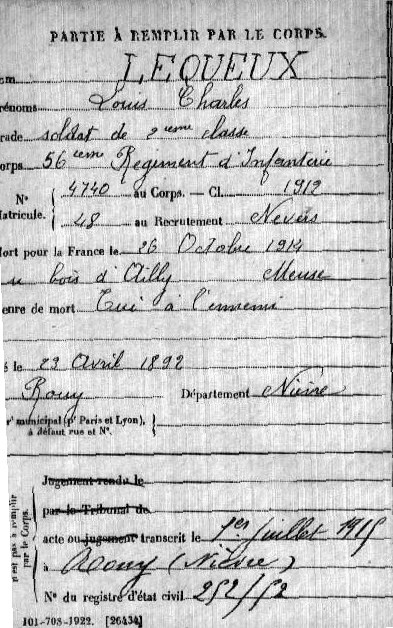 PARTIE À REMPLIR PAR LE CORPS.
om LEQUEUX
rénoms Louis Charles
rade soldat de 2eme classe
orps 56eme Regiment d'Infanterie
N° 4740 au Corps. — Cl. 1912
atricule. 48 au Recrutement Nevers
ort pour la France le 26 Octobre 1914
u bois d'Ailly Meuse
enre de mort Tué à l'ennemi
é le 23 Avril 1892
Rouy Département Nièvre
r municipal (pr Paris et Lyon),
à défaut rue et N°.
Jugement rendu le
par le Tribunal de
acte ou jugement transcrit le 1er Juillet 1915
à Rouy (Nièvre)
N° du registre d'état civil 252/52
n'est pas à remplir
par le Corps.
101-708-1922. [26434]